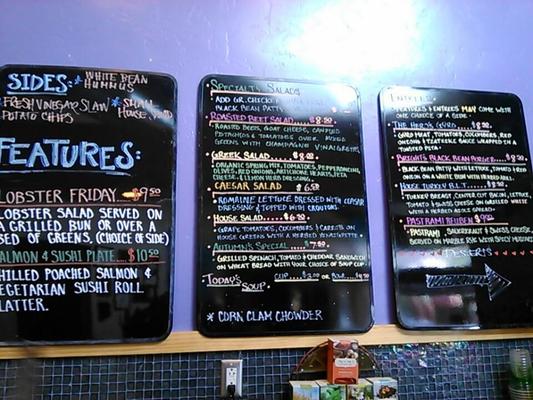 SIDES:
* WHITE BEAN HUMMUS
* FRESH VINEGAR SLAW
* SMALL HOUSE SALAD
POTATO CHIPS
FEATURES:
LOBSTER FRIDAY $9.50
LOBSTER SALAD SERVED ON
A GRILLED BUN OR OVER A
BED OF GREENS. (CHOICE OF SIDE)
SALMON & SUSHI PLATE $10.50
CHILLED POACHED SALMON &
VEGETARIAN SUSHI ROLL
PLATTER.
SPECIALTY SALADS
ADD GR. CHICKEN
BLACK BEAN PATTY
ROASTED BEET SALAD $8.50
ROASTED BEETS, GOAT CHEESE, CANDIED
PISTACHIOS & TOMATOES OVER MIXED
GREENS WITH CHAMPAGNE VINAIGRETTE
GREEK SALAD $8.00
ORGANIC SPRING MIX, TOMATOES, PEPPERONCINI,
OLIVES, RED ONIONS, ARTICHOKE HEARTS, FETA
CHEESE & LEMON HERB DRESSING.
CAESAR SALAD $6.50
ROMAINE LETTUCE DRESSED WITH CAESAR
DRESSING & TOPPED WITH CROUTONS.
HOUSE SALAD $6.50
GRAPE TOMATOES, CUCUMBERS & CARROTS ON
HOUSE GREENS WITH A HERBED VINAIGRETTE
AUTUMN'S SPECIAL
GRILLED SPINACH, TOMATO & CHEDDAR SANDWICH
ON WHEAT BREAD WITH YOUR CHOICE OF SOUP CUP
TODAY'S SOUP
CUP OR BOWL
* CORN CLAM CHOWDER
ENTREES
FEATURES & ENTREES MAY COME WITH
ONE CHOICE OF A SIDE.
THE GYRO $8.50
GYRO MEAT, TOMATOES, CUCUMBERS, RED
ONION & TZATZIKI SAUCE WRAPPED IN A
TOASTED PITA
BLACK BEAN BURGER $8.50
BLACK BEAN PATTY WITH LETTUCE, TOMATO & RED
ONION ON A WHITE BUN WITH
HOUSE TURKEY B.L.T. $8.50
TURKEY BREAST, CENTER CUT BACON, LETTUCE,
TOMATO & SWISS CHEESE ON GRILLED WHITE
WITH A HERBED AIOLI SPREAD
PASTRAMI REUBEN
PASTRAMI, SAUERKRAUT & SWISS CHEESE,
SERVED ON MARBLE RYE WITH SPICY MUSTARD
DESSERTS